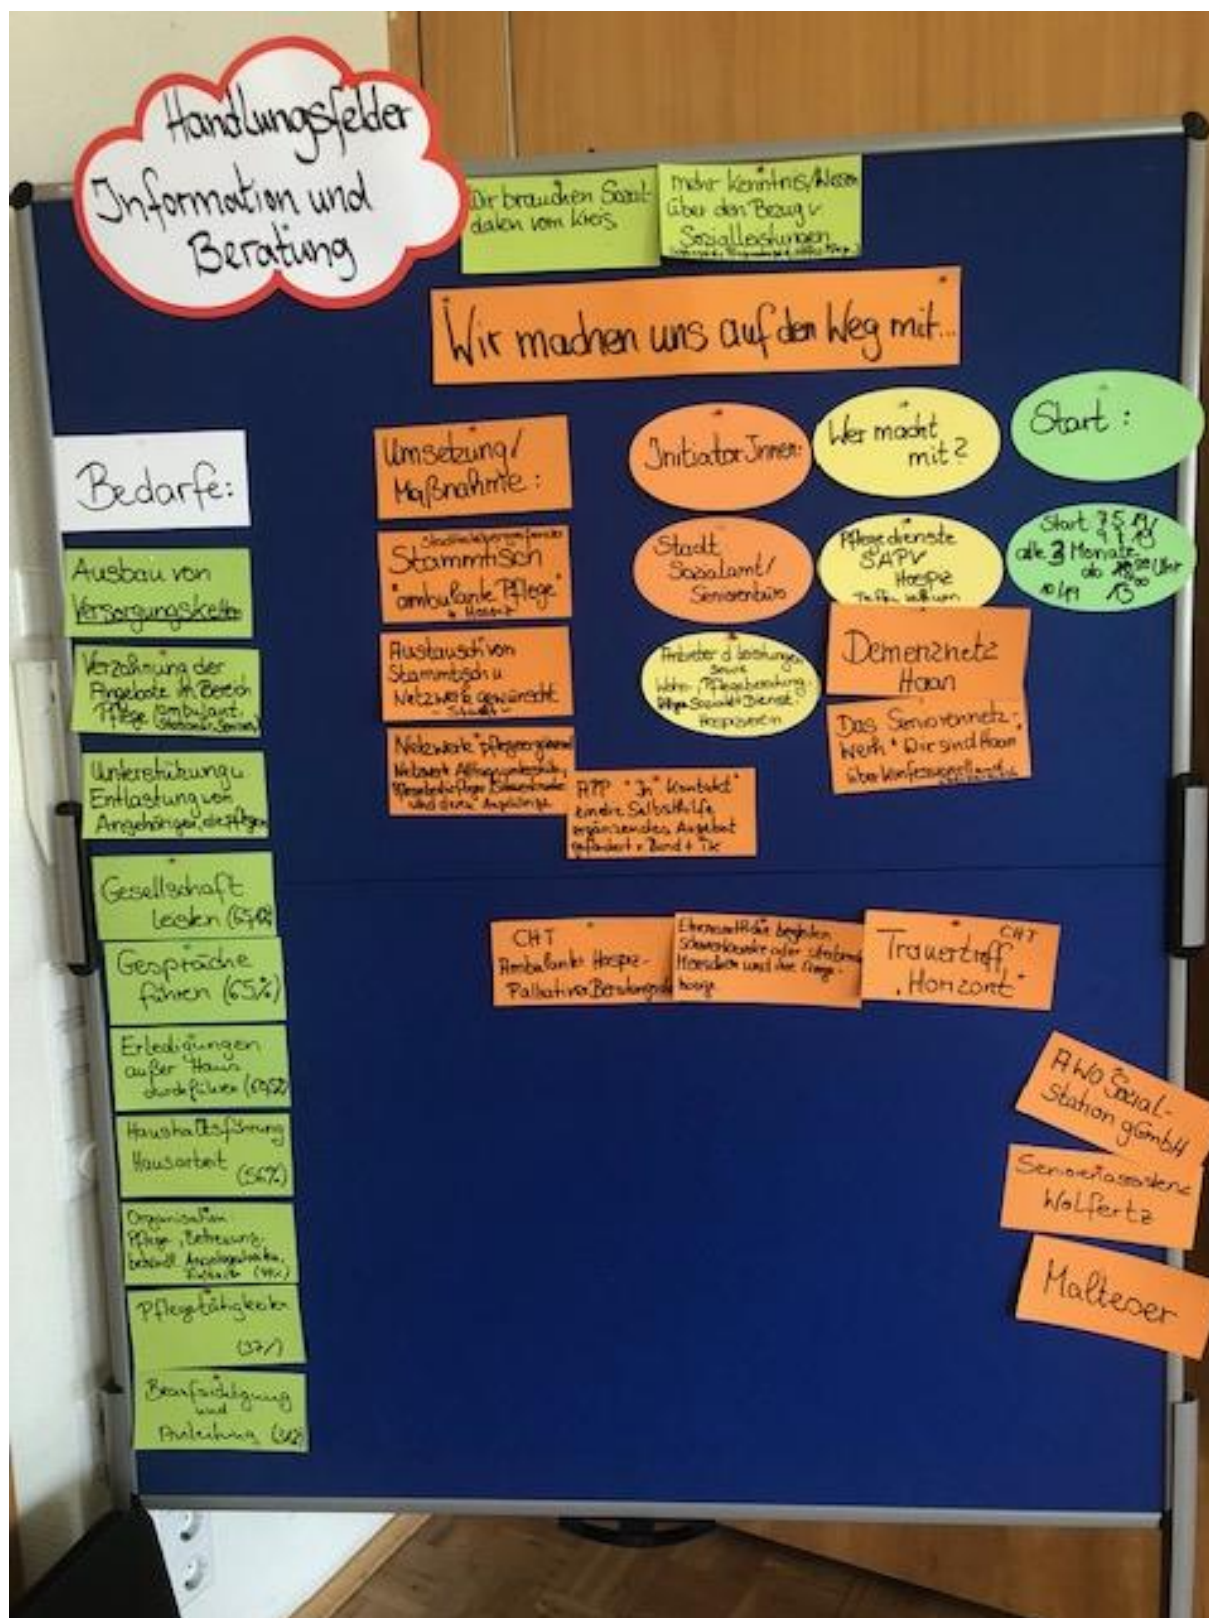 Handlungsfelder
Information und
Beratung
Wir brauchen Sozial-
daten vom Kreis
mehr Kenntnis/Wissen
über den Bezug v
Sozialleistungen
Wir machen uns auf den Weg mit...
Bedarfe:
Ausbau von
Versorgungsketten
Verzahnung der
Angebote im Bereich
Pflege (ambulant,
Unterstützung u
Entlastung von
Angehörigen, die pflegen
Gesellschaft
leisten
Gespräche
führen (65%)
Erledigungen
außer Haus
durchführen
Haushaltsführung
Hausarbeit
(56%)
Organisation
Pflege, Betreuung,
Pflegetätigkeiten
(37%)
Beaufsichtigung
und
Anleitung
Umsetzung/
Maßnahme:
Stammtisch
"ambulante Pflege"
Austausch von
Stammtisch u
Netzwerk gewünscht
Netzwerk
und deren Angehörige
APP "In Kontakt"
eine Selbsthilfe
ergänzendes Angebot
gefördert v Bund +
InitiatorInnen:
Stadt
Sozialamt/
Seniorenbüro
Anbieter d Leistungen
sowie
Wohn-, Pflegeberatung
Hospizverein
Wer macht
mit?
Pflegedienste
SAPV
Hospiz
Demenznetz
Haan
Das Seniorennetz-
werk "Wir sind Haan"
Start:
Start
alle 3 Monate
ab Uhr
CHT
Ambulanter Hospiz-
Palliativer Beratungs
Ehrenamtliche begleiten
schwerkranke oder sterbende
Menschen und ihre Ange-
hörige
CHT
Trauertreff
"Horizont"
AWO Sozial-
Station gGmbH
Seniorenassistenz
Wolfertz
Malteser